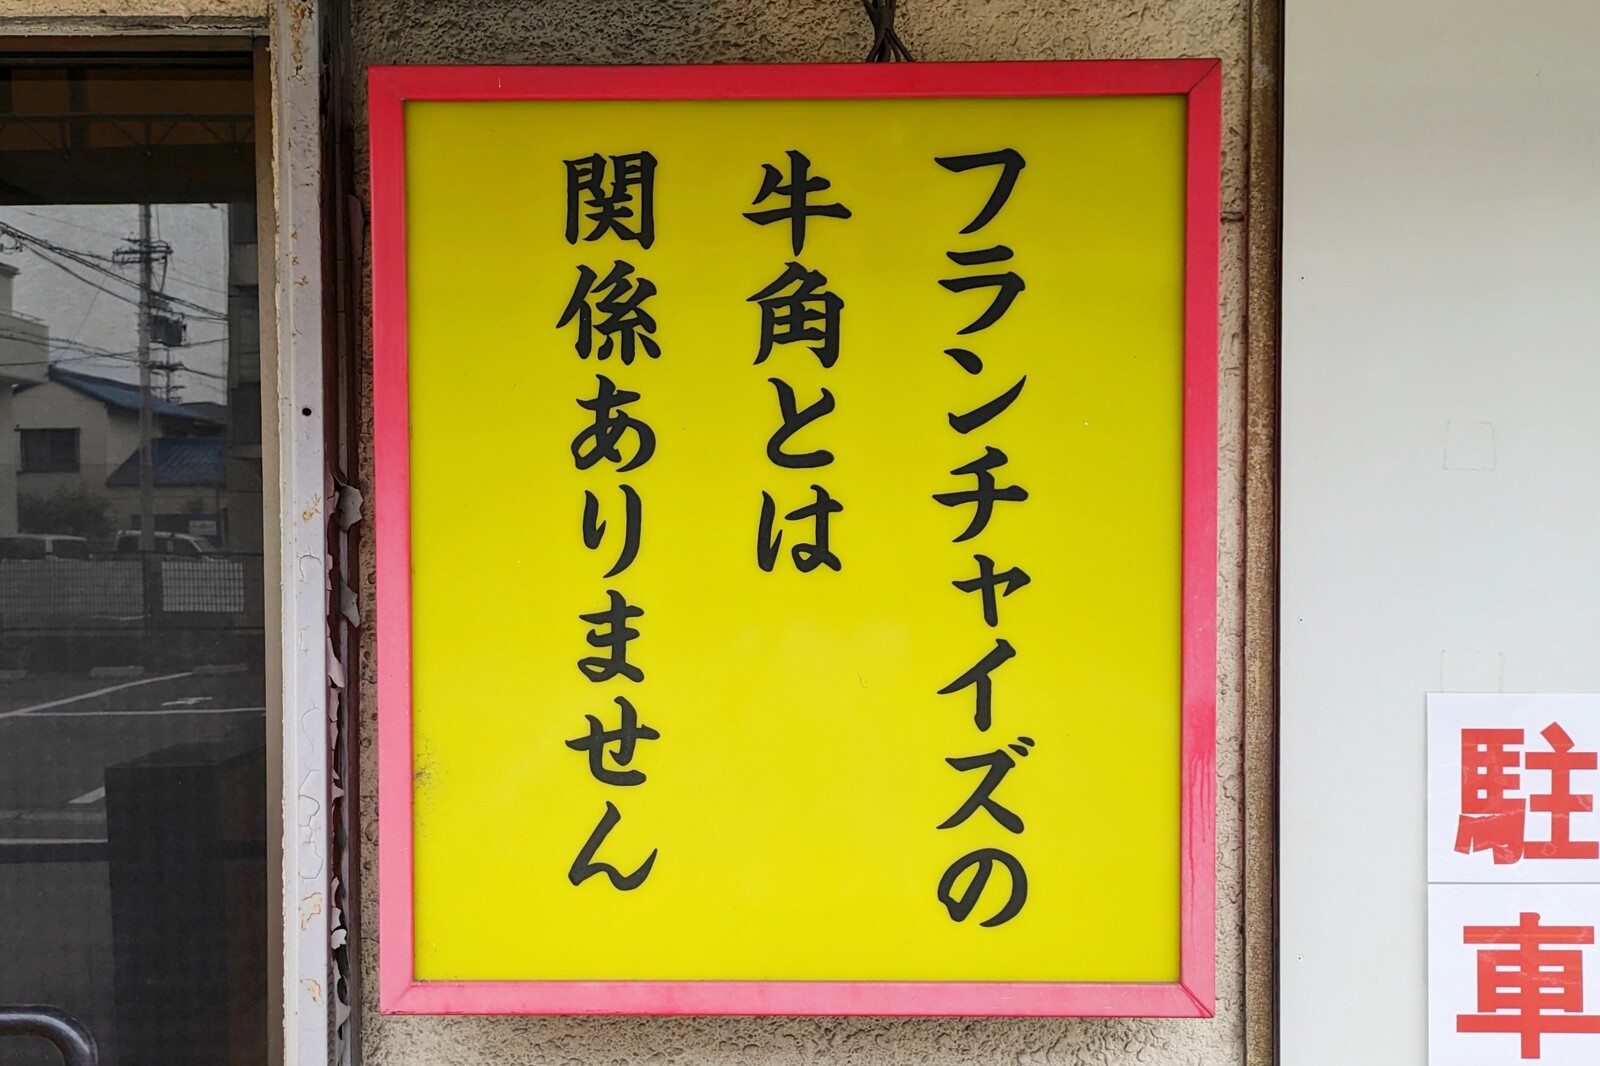 フランチャイズの
牛角とは
関係ありません
駐
車